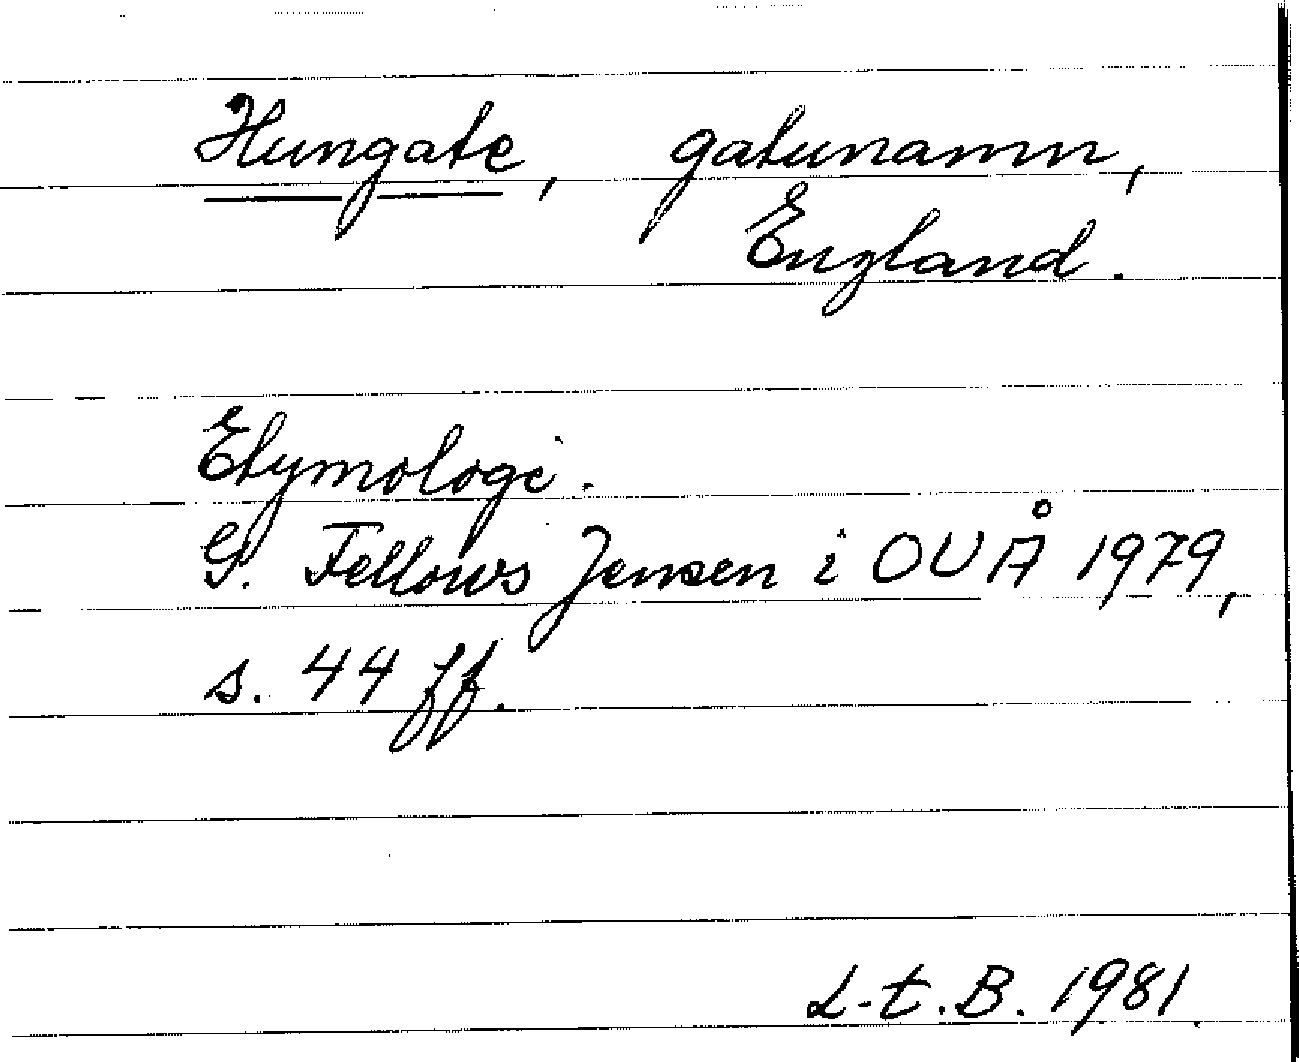 Hungate, gatunamn,
England.
Etymologi.
G. Fellows Jensen i OUÅ 1979,
s. 44 ff.
L-t. B. 1981.